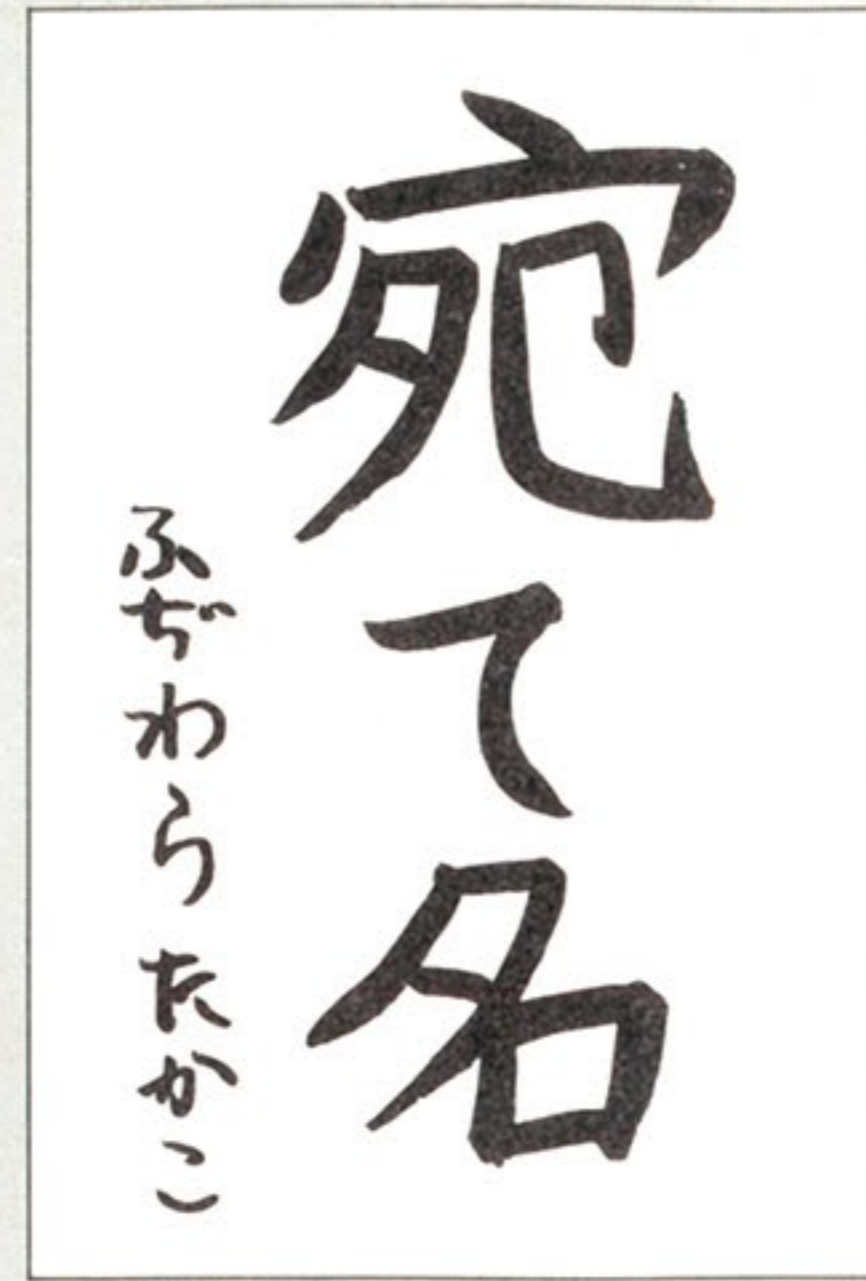 宛て名
ふぢわら たかこ